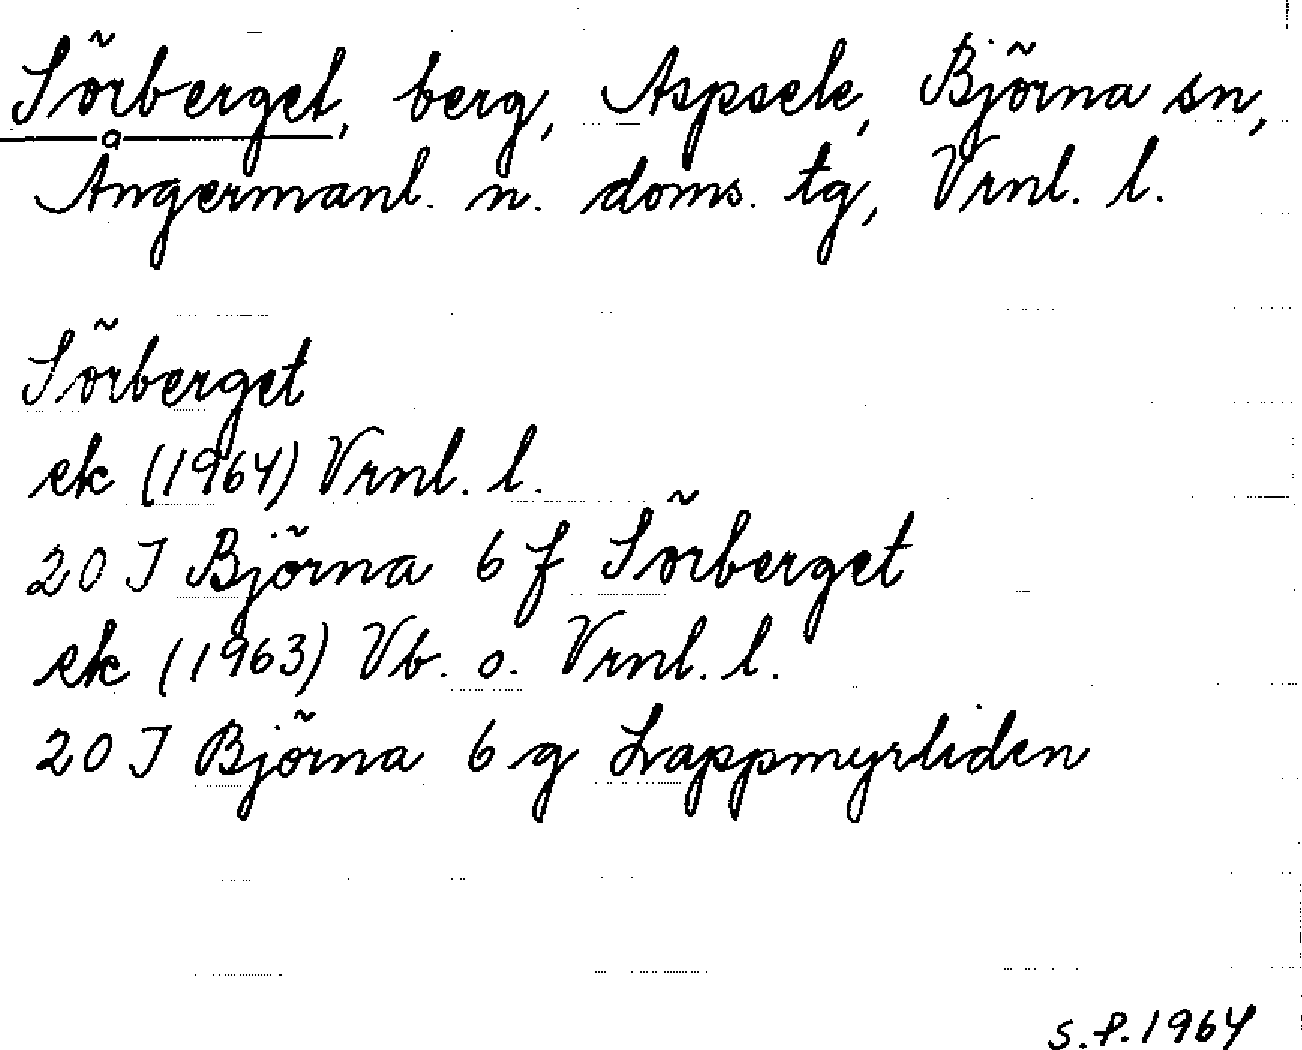 Sörberget, berg, Aspsele, Björna sn,
Ångermanl. n. doms. tg, Vrnl. l.
Sörberget
ek (1964) Vrnl. l.
20 J Björna 6 f Sörberget
ek (1963) Vb. o. Vrnl. l.
20 J Björna 6 g Lappmyrliden
s. f. 1964